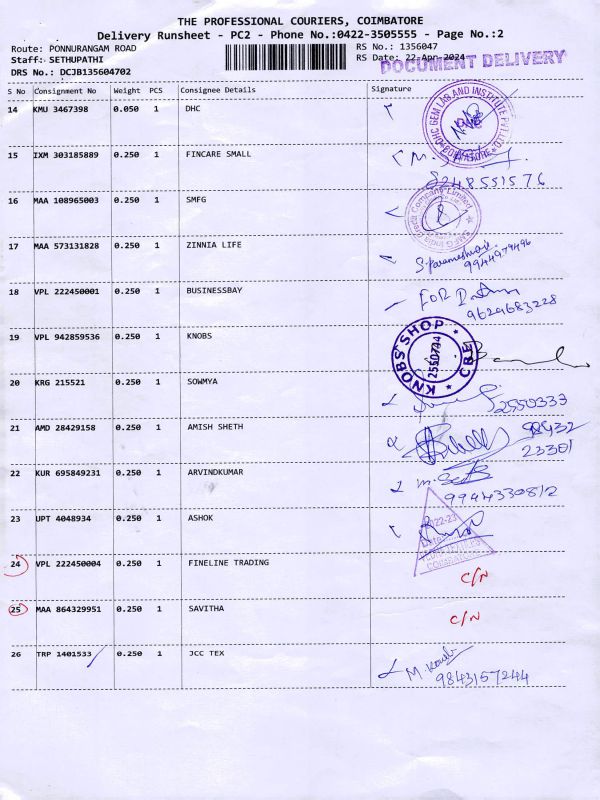 THE PROFESSIONAL COURIERS, COIMBATORE
Delivery Runsheet - PC2 - Phone No.:0422-3505555 - Page No.:2
Route: PONNURANGAM ROAD RS No.: 1356047
Staff: SETHUPATHI RS Date: 22-Apr-2024
DOCUMENT DELIVERY
DRS No.: DCJB135604702
S No Consignment No Weight PCS Consignee Details Signature
14 KMU 3467398 0.050 1 DHC
15 IXM 303185889 0.250 1 FINCARE SMALL
8248551576
16 MAA 108965003 0.250 1 SMFG
17 MAA 573131828 0.250 1 ZINNIA LIFE
9944979496
18 VPL 222450001 0.250 1 BUSINESSBAY FOR
9629683228
19 VPL 942859536 0.250 1 KNOBS
KNOBS SHOP CBE
2550744
20 KRG 215521 0.250 1 SOWMYA 2550333
21 AMD 28429158 0.250 1 AMISH SHETH 98432
23301
22 KUR 695849231 0.250 1 ARVINDKUMAR
9944330812
23 UPT 4048934 0.250 1 ASHOK
24 VPL 222450004 0.250 1 FINELINE TRADING C/N
25 MAA 864329951 0.250 1 SAVITHA C/N
26 TRP 1401533 0.250 1 JCC TEX
9843157244